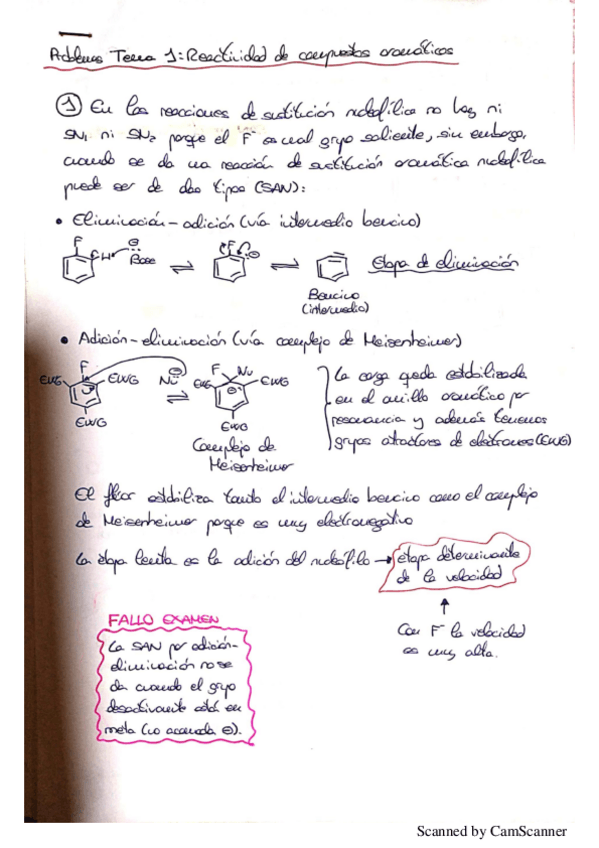 Problemas Tema 1: Reactividad de compuestos aromáticos
① En las reacciones de sustitución nucleofílica no hay ni
SN1 ni SN2 porque el F⁻ es mal grupo saliente, sin embargo,
cuando se da una reacción de sustitución aromática nucleofílica
puede ser de dos tipos (SAN):
• Eliminación-adición (vía intermedio bencino)
F
H
⊖
Base
⇌
F
⊖
⇌
Etapa de eliminación
Bencino
(intermedio)
• Adición-eliminación (vía complejo de Meisenheimer)
F
EWG
EWG
EWG
Nu
⊖
⇌
F
Nu
EWG
EWG
⊖
EWG
Complejo de
Meisenheimer
La carga queda estabilizada
en el anillo aromático por
resonancia y además tenemos
grupos atractores de electrones (EWG)
El flúor estabiliza tanto el intermedio bencino como el complejo
de Meisenheimer porque es muy electronegativo
La etapa lenta es la adición del nucleófilo → etapa determinante
de la velocidad
↑
Con F⁻ la velocidad
es muy alta.
FALLO EXAMEN
La SAN por adición-
eliminación no se
da cuando el grupo
desactivante está en
meta (no acomoda ⊖).
Scanned by CamScanner